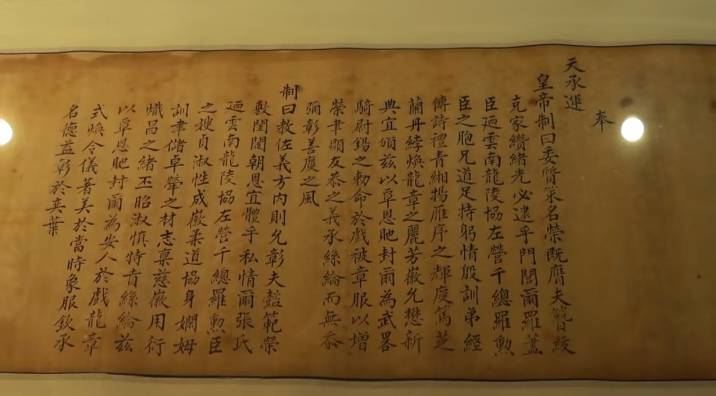 奉
天承運
皇帝制曰委質策名榮既膺夫簪紱
克家纘緒光必逮乎門閭爾羅蓋
臣迺雲南龍陵協左營千總羅勲
臣之胞兄道足持躬情殷訓弟經
傳詩禮青緗揚雁序之輝度篤芝
蘭丹綍煥龍章之麗芳徽允懋新
典宜頒茲以覃恩貤封爾為武畧
騎尉錫之勅命於戲被章服以增
榮聿顯友恭之義承絲綸而無忝
彌彰善慶之風
制曰敎佐義方內則允彰夫懿範榮
敷閨闥朝恩宜體乎私情爾張氏
迺雲南龍陵協左營千總羅勲臣
之嫂貞淑性成徽柔道協身嫻姆
訓聿儲卓犖之材志稟慈徽用衍
熾昌之緒丕昭淑慎特賁絲綸茲
以覃恩貤封爾為安人於戲龍章
式煥令儀著美於當時象服欽承
名德益彰於奕葉